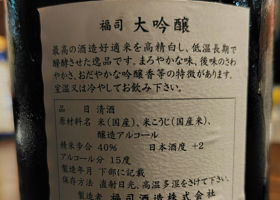 福司 大吟醸
最高の酒造好適米を高精白し、低温長期で
醗酵させた逸品です。まろやかな味、後味のさわ
やかさ、おだやかな吟醸香等の特徴があります。
室温又は冷やしてお飲み下さい。
品目 清酒
原材料名 米(国産)、米こうじ(国産米)、
醸造アルコール
精米歩合 40% 日本酒度 +2
アルコール分 15度
製造年月 下部に記載
保存方法 直射日光、高温多湿をさけて下さい。
製造者 福司酒造株式会社